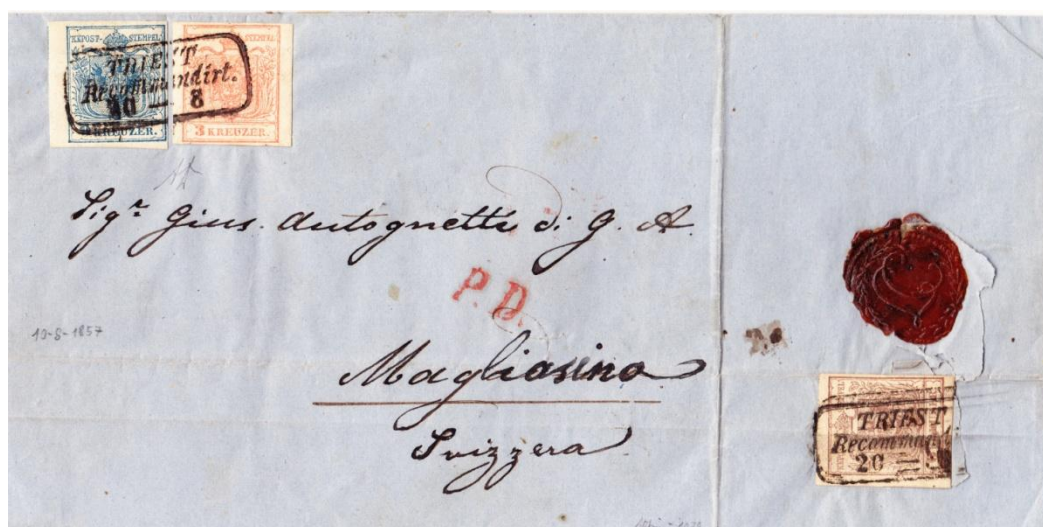 KKPOST-STEMPEL
STEMPEL
TRIEST
Recommandirt.
20 — 8
KREUZER.
3 KREUZER.
Sigr. Gius. Antognetti di G. A.
P.D.
19-8-1857
Magliasina
Svizzera
TRIEST
Recomman
20